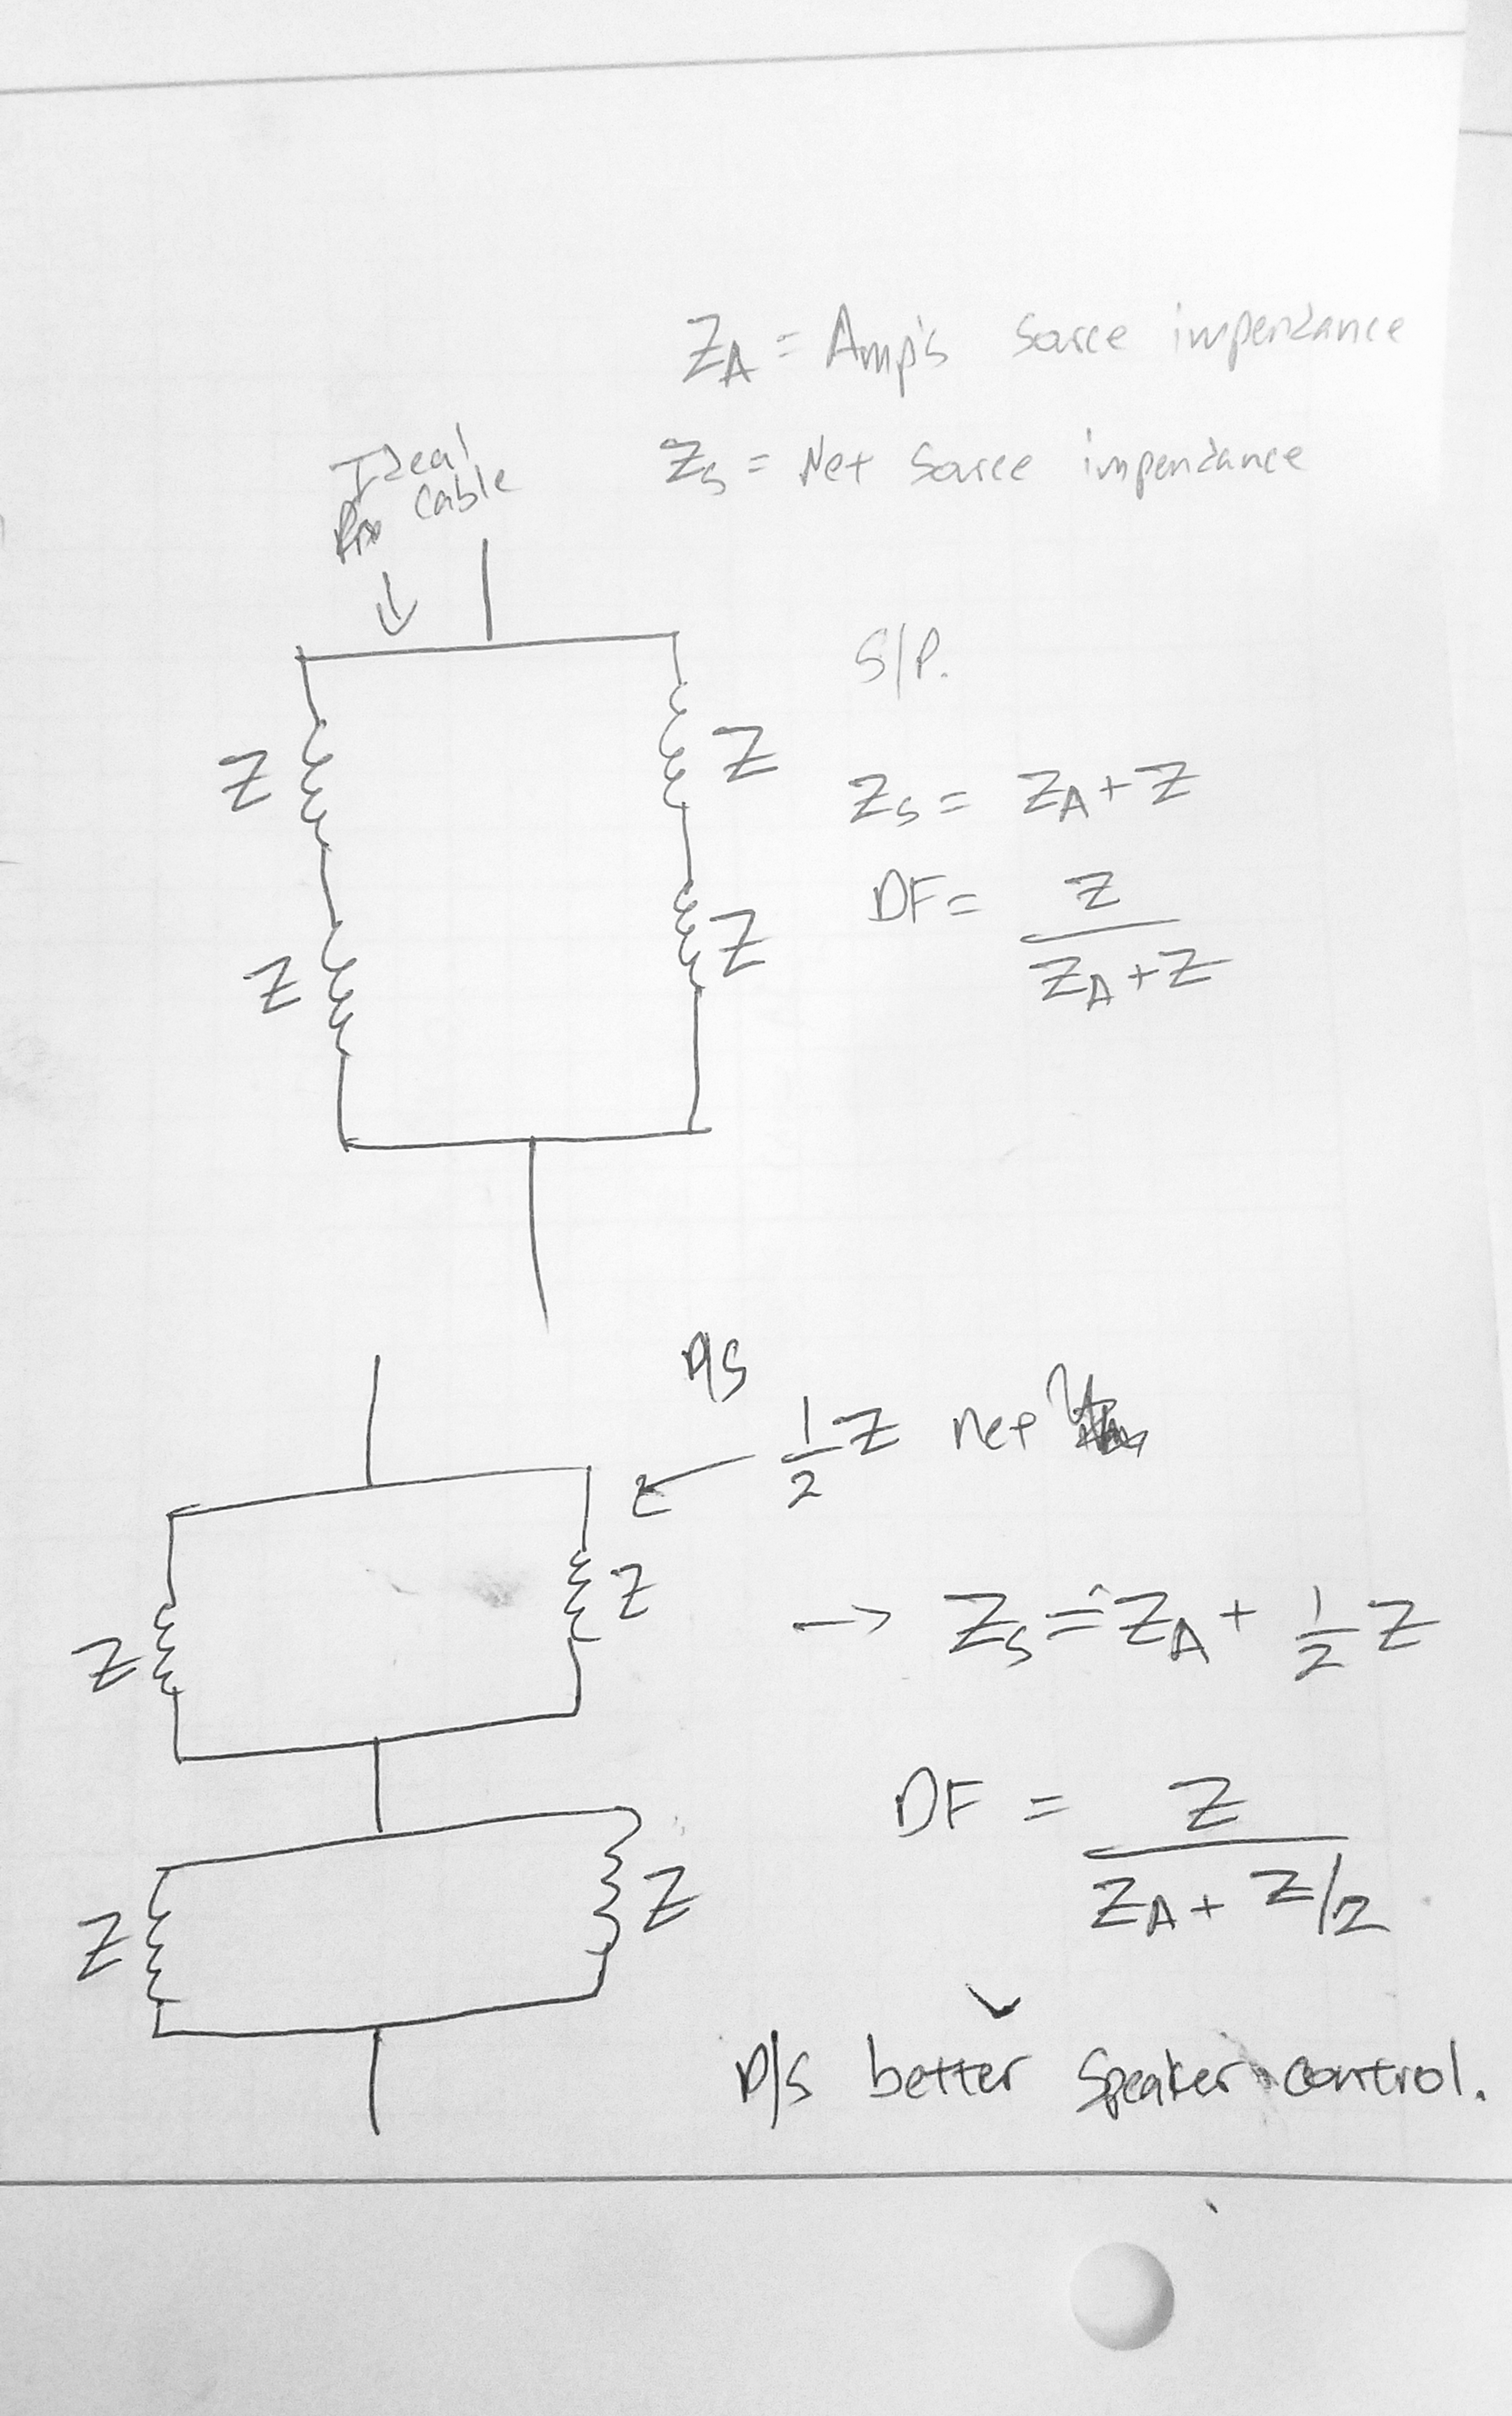 Z_A = Amp's Source impendance
Z_S = Net Source impendance
Ideal
Cable
S/P.
Z
Z
Z_S = Z_A + Z
DF = Z / (Z_A + Z)
Z
Z
P/S
1/2 Z net
Z
Z
→ Z_S = Z_A + 1/2 Z
DF = Z / (Z_A + Z/2)
Z
Z
P/S better Speaker control.